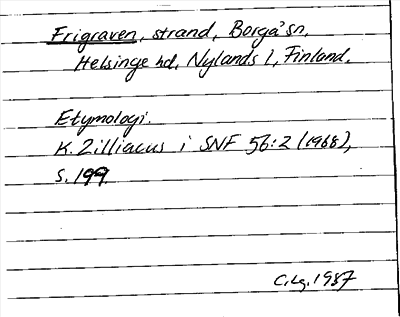 Frigraven, strand, Borgå sn,
Helsinge hd, Nylands l, Finland.
Etymologi.
K. Zilliacus i SNF 56:2 (1968),
s. 199.
C.Lg. 1987